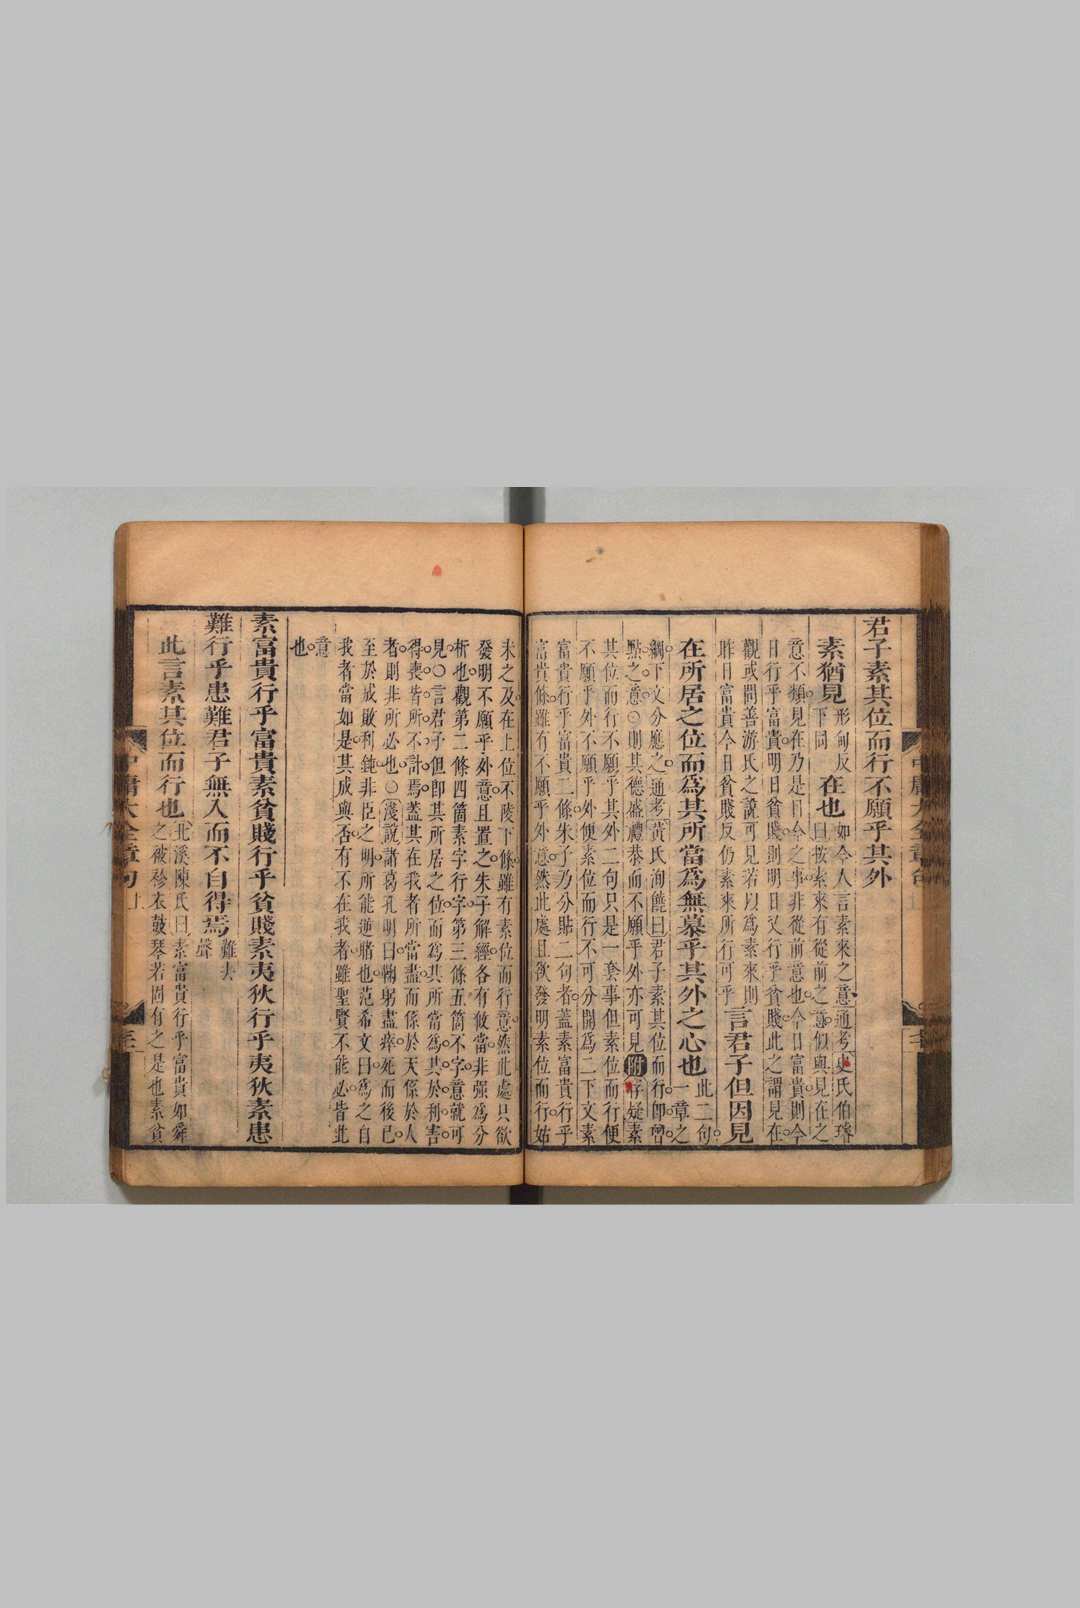 君子素其位而行不願乎其外
素猶見形甸反下同在也如今人言素來之意通考史氏伯璿
曰按素來有從前之意似與見在之
意不類見在乃是目今之事非從前意也今日富貴則今
日行乎富貴明日貧賤則明日又行乎貧賤此之謂見在
觀或問善游氏之說可見若以為素來則
昨日富貴今日貧賤反仍素來所行可乎言君子但因見
在所居之位而爲其所當爲無慕乎其外之心也此二句一章之
綱下文分應之通考黃氏洵饒曰君子素其位而行即曾
點之意則其德盛禮恭而不願乎外亦可見附存疑素
其位而行不願乎其外二句只是一套事但素位而行便
不願乎外不願乎外便素位而行不可分開爲二下文素
富貴行乎富貴二條朱子乃分貼二句者蓋素富貴行乎
富貴條雖有不願乎外意然此處且欲發明素位而行姑
未之及在上位不陵下條雖有素位而行意然此處只欲
發明不願乎外意且置之朱子解經各有攸當非强爲分
析也觀第二條四箇素字行字第三條五箇不字意就可
見○言君子但即其所居之位而爲其所當爲其於利害
得喪皆所不計焉蓋其在我者所當盡而係於天係於人
者則非所必也○淺說諸葛孔明曰鞠躬盡瘁死而後已
至於成敗利鈍非臣之明所能逆睹也范希文曰爲之自
我者當如是其成與否有不在我者雖聖賢不能必皆此
意
也
素富貴行乎富貴素貧賤行乎貧賤素夷狄行乎夷狄素患
難行乎患難君子無入而不自得焉難去聲
此言素其位而行也北溪陳氏曰素富貴行乎富貴如舜
之被袗衣鼓琴若固有之是也素貧
中庸大全章句上